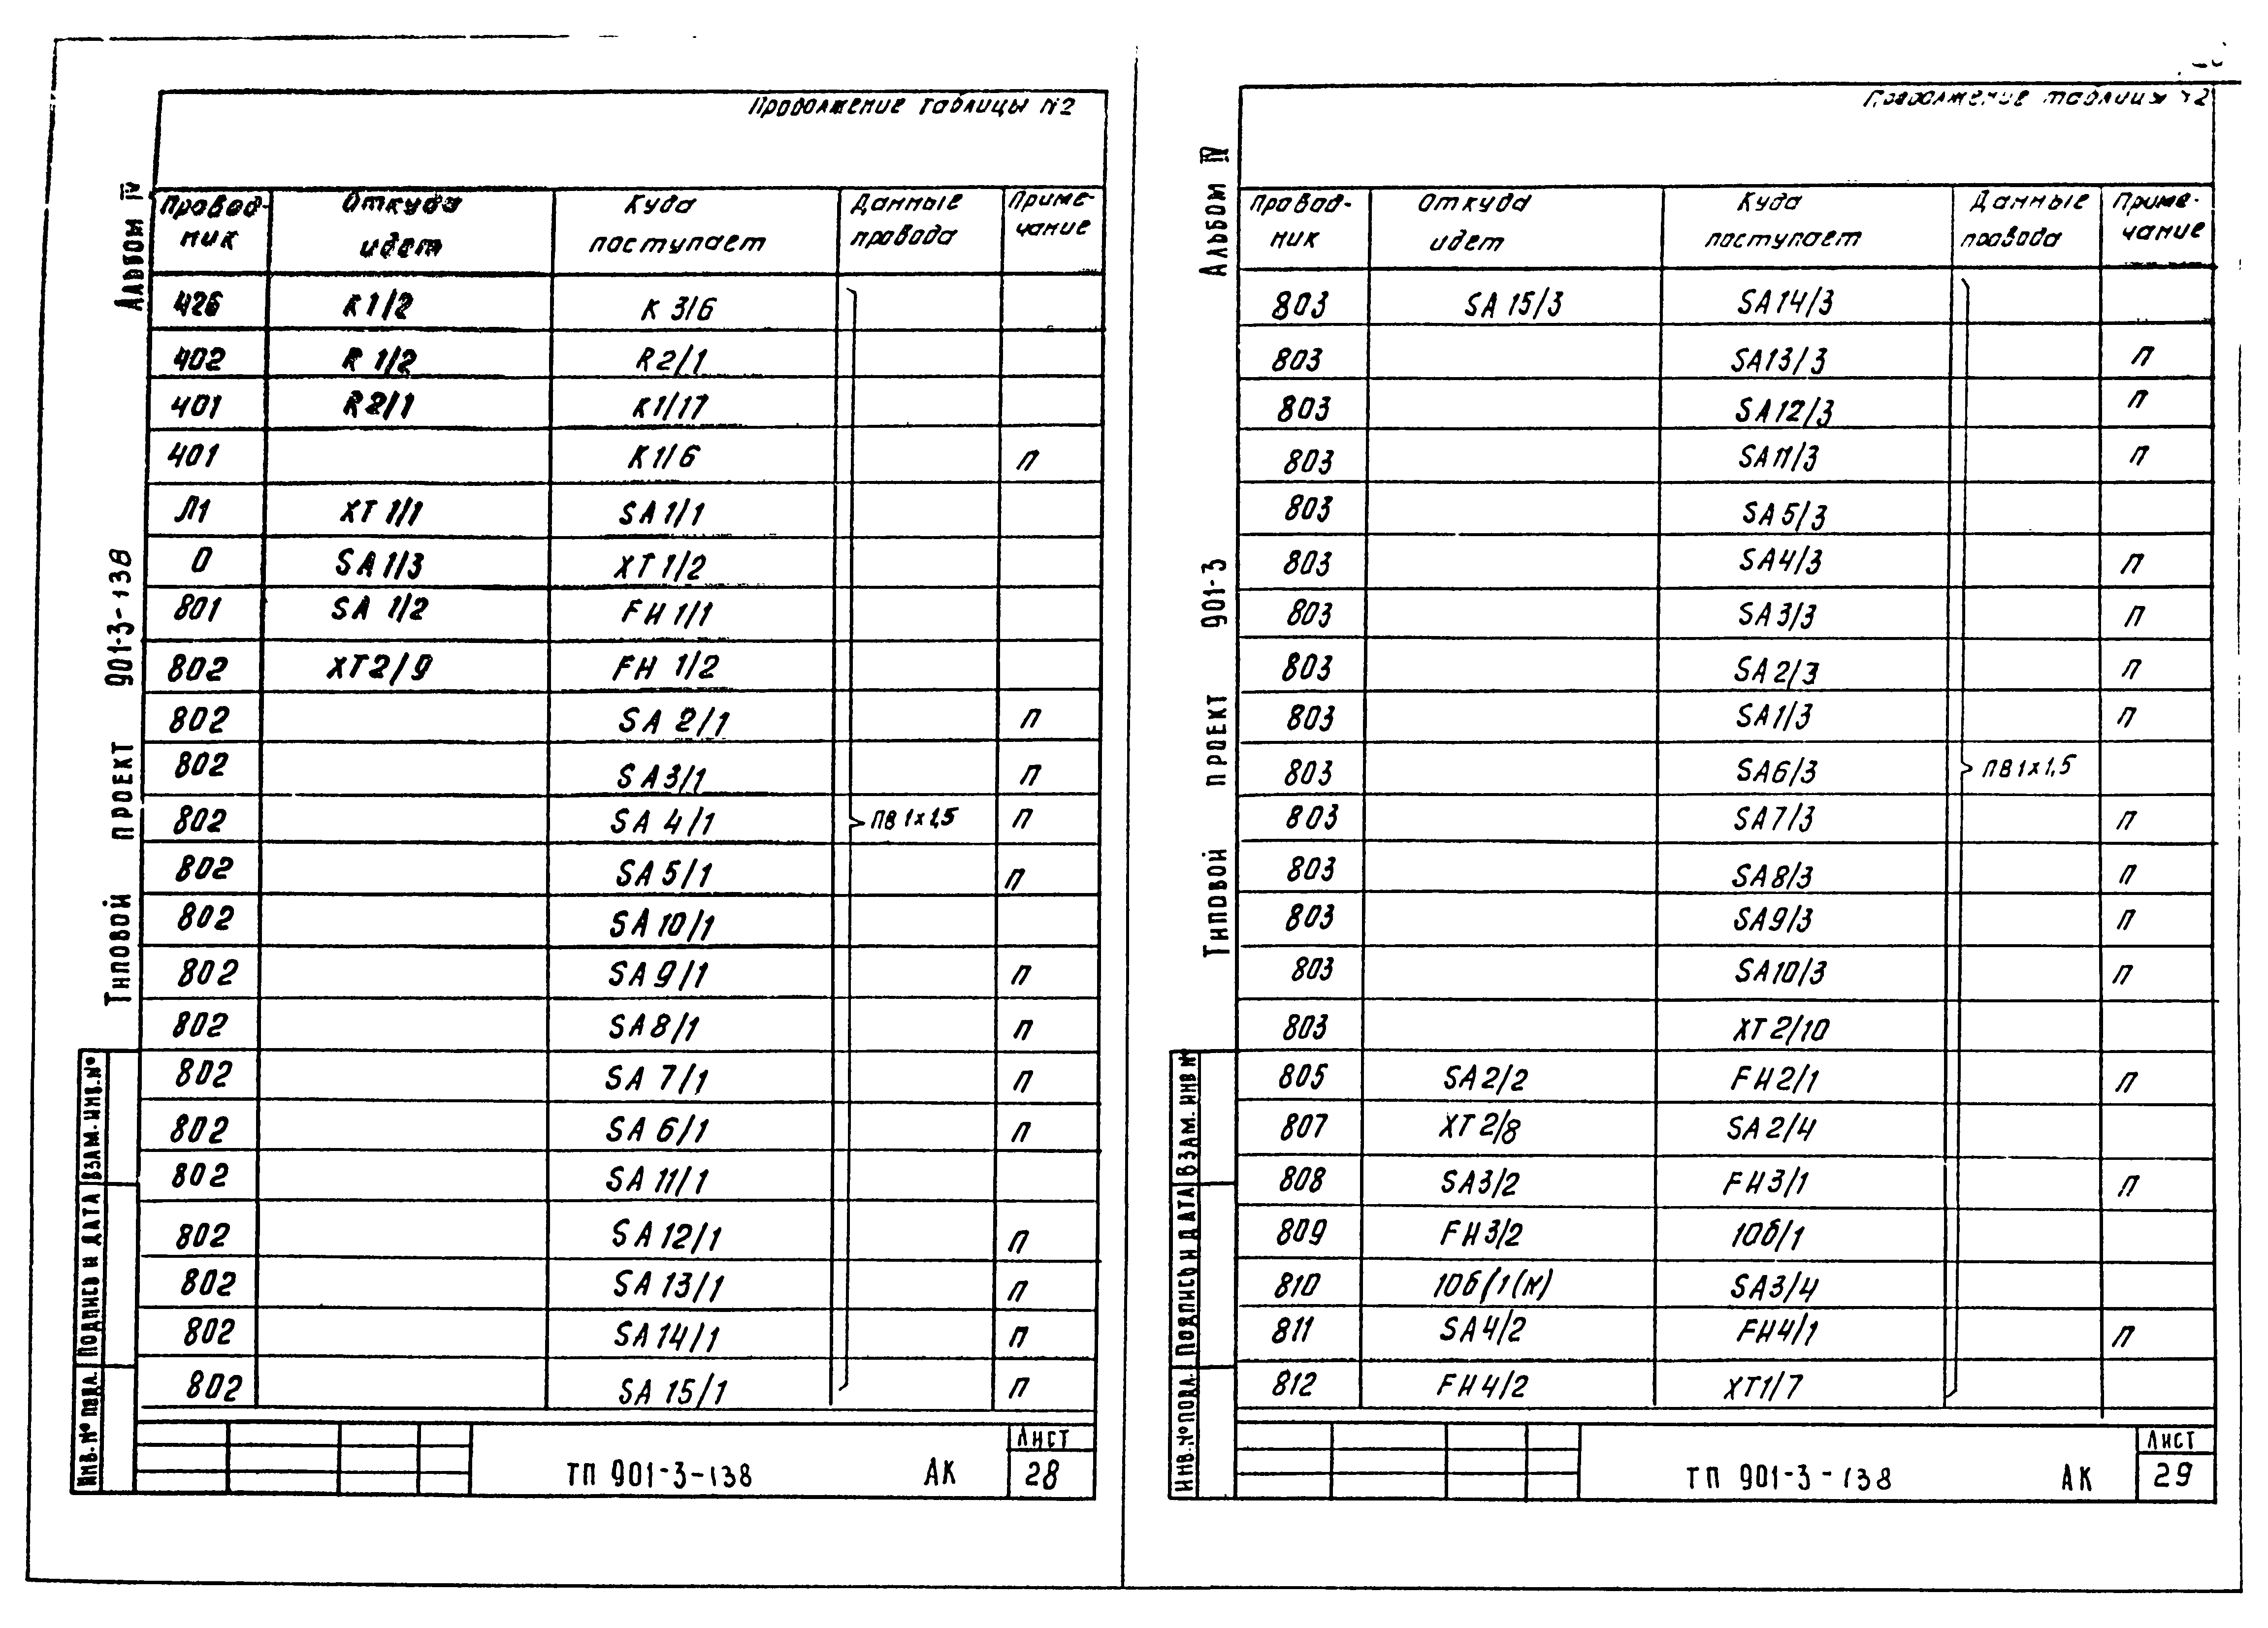 Продолжение таблицы N2
Альбом IV
Типовой проект 901-3-138
Провод-ник Откуда идет Куда поступает Данные провода Приме-чание
426 К1/2 К 3/6
402 R 1/2 R2/1
401 R2/1 К1/17
401 К1/6 п
Л1 ХТ 1/1 SA 1/1
0 SA 1/3 ХТ 1/2
801 SA 1/2 FH 1/1
802 ХТ2/9 FH 1/2
802 SA 2/1 п
802 SA3/1 п
802 SA 4/1 ПВ 1х1,5 п
802 SA 5/1 п
802 SA 10/1
802 SA 9/1 п
802 SA 8/1 п
802 SA 7/1 п
802 SA 6/1 п
802 SA 11/1
802 SA 12/1 п
802 SA 13/1 п
802 SA 14/1 п
802 SA 15/1 п
ИНВ.№ подл. Подпись и дата Взам. инв.№
ТП 901-3-138 АК
Лист
28
Продолжение таблицы 2
Альбом IV
Типовой проект 901-3
Провод-ник Откуда идет Куда поступает Данные провода Приме-чание
803 SA 15/3 SA14/3
803 SA13/3 п
803 SA12/3 п
803 SA11/3 п
803 SA5/3
803 SA4/3 п
803 SA3/3 п
803 SA2/3 п
803 SA1/3 п
803 SA6/3 ПВ 1х1,5
803 SA7/3 п
803 SA8/3 п
803 SA9/3 п
803 SA10/3 п
803 ХТ2/10
805 SA2/2 FH2/1 п
807 ХТ2/8 SA2/4
808 SA3/2 FH3/1 п
809 FH3/2 10б/1
810 10б/1(к) SA3/4
811 SA4/2 FH4/1 п
812 FH4/2 ХТ1/7
Инв.№ подл. Подпись и дата Взам. инв №
ТП 901-3-138 АК
Лист
29